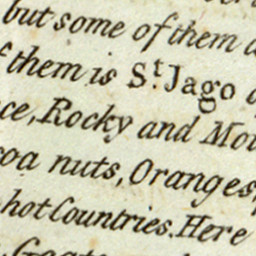 but some of them
them is St. Jago
Rocky and
nuts, Oranges,
hot Countries. Here